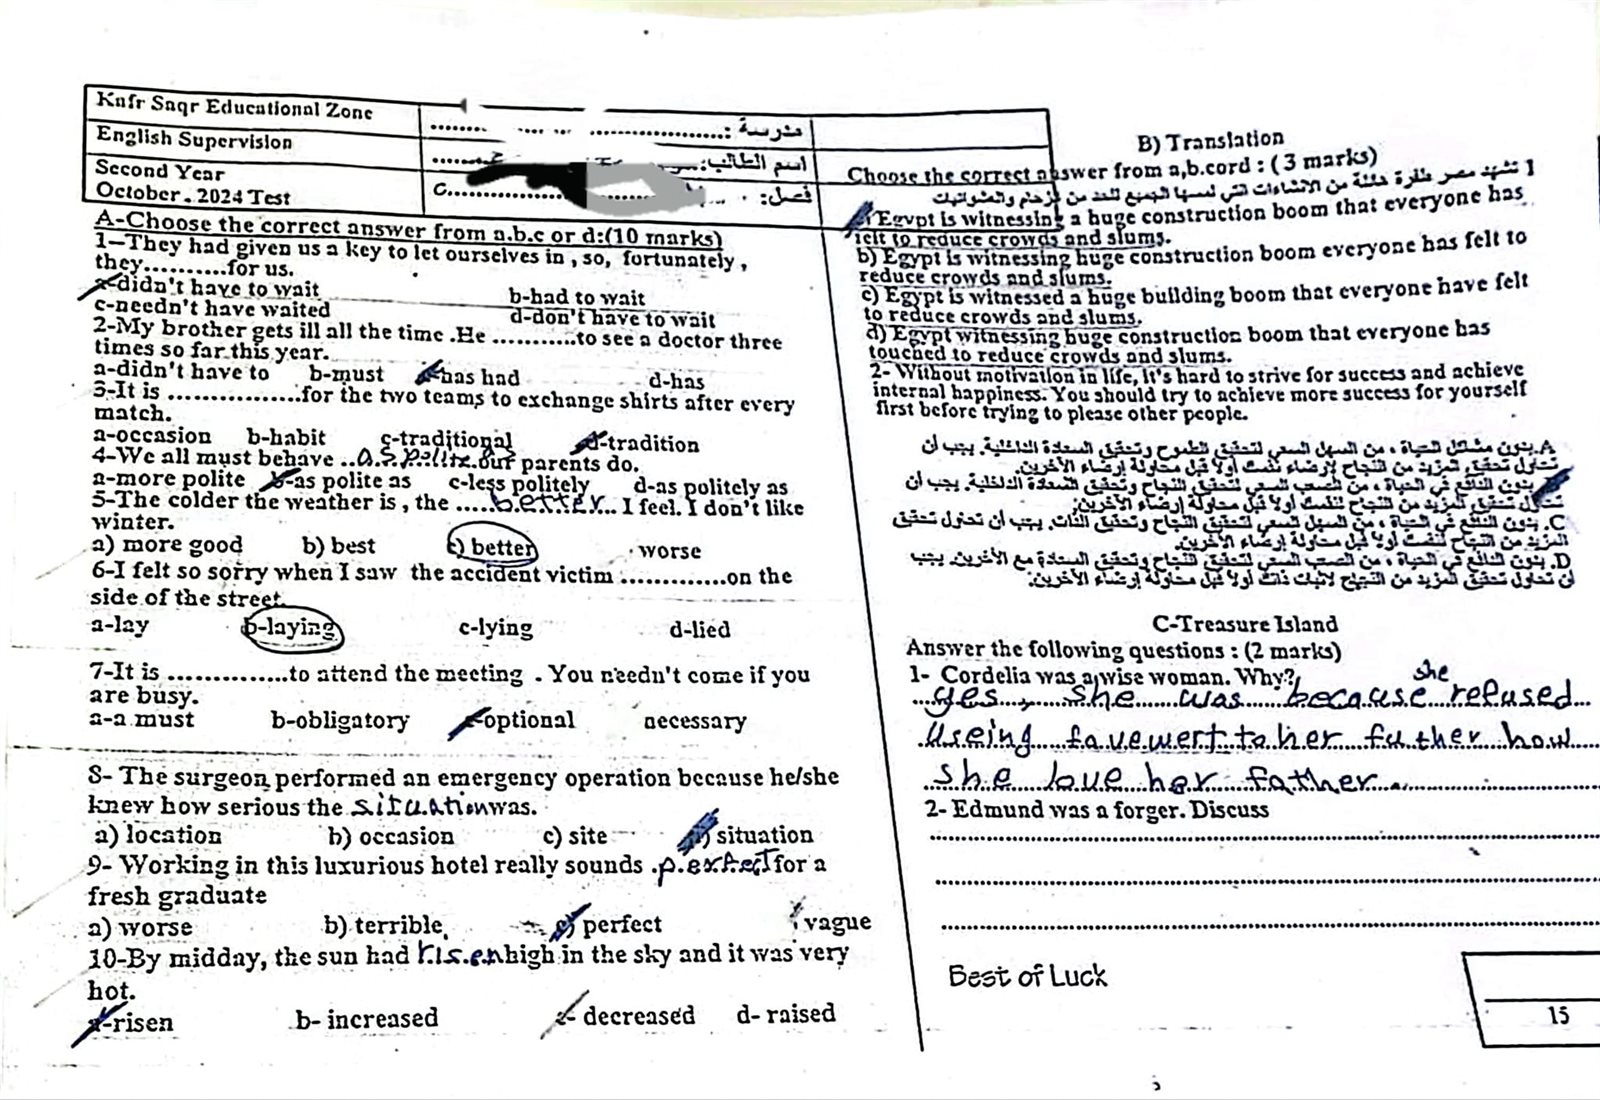 Kafr Saqr Educational Zone
English Supervision
Second Year
October . 2024 Test
مدرسة :
اسم الطالب:
فصل:
A-Choose the correct answer from a.b.c or d:(10 marks)
1–They had given us a key to let ourselves in , so, fortunately ,
they..........for us.
a-didn't have to wait b-had to wait
c-needn't have waited d-don't have to wait
2-My brother gets ill all the time .He ...........to see a doctor three
times so far this year.
a-didn't have to b-must c-has had d-has
3-It is ................for the two teams to exchange shirts after every
match.
a-occasion b-habit c-traditional d-tradition
4-We all must behave ..as polite..our parents do.
a-more polite b-as polite as c-less politely d-as politely as
5-The colder the weather is , the .....better... I feel. I don't like
winter.
a) more good b) best c) better worse
6-I felt so sorry when I saw the accident victim .............on the
side of the street.
a-lay b-laying c-lying d-lied
7-It is ...............to attend the meeting . You needn't come if you
are busy.
a-a must b-obligatory c-optional necessary
8- The surgeon performed an emergency operation because he/she
knew how serious the situation was.
a) location b) occasion c) site d) situation
9- Working in this luxurious hotel really sounds .perfect for a
fresh graduate
a) worse b) terrible c) perfect vague
10-By midday, the sun had risen high in the sky and it was very
hot.
a-risen b- increased c- decreased d- raised
B) Translation
Choose the correct answer from a,b.cord : ( 3 marks)
1 تشهد مصر طفرة هائلة من الانشاءات التي لمسها الجميع للحد من الزحام والعشوائيات
a) Egypt is witnessing a huge construction boom that everyone has
felt to reduce crowds and slums.
b) Egypt is witnessing huge construction boom everyone has felt to
reduce crowds and slums.
c) Egypt is witnessed a huge building boom that everyone have felt
to reduce crowds and slums.
d) Egypt witnessing huge construction boom that everyone has
touched to reduce crowds and slums.
2- Without motivation in life, it's hard to strive for success and achieve
internal happiness. You should try to achieve more success for yourself
first before trying to please other people.
A. بدون مشاكل الحياة ، من السهل السعي لتحقيق الطموح وتحقيق السعادة الداخلية. يجب أن
تحاول تحقيق المزيد من النجاح لإرضاء نفسك أولا قبل محاولة إرضاء الآخرين.
بدون الدافع في الحياة ، من الصعب السعي لتحقيق النجاح وتحقيق السعادة الداخلية. يجب أن
تحاول تحقيق المزيد من النجاح لنفسك أولا قبل محاولة إرضاء الآخرين.
C. بدون الدافع في الحياة ، من السهل السعي لتحقيق النجاح وتحقيق الذات. يجب أن تحاول تحقيق
المزيد من النجاح لنفسك أولا قبل محاولة إرضاء الآخرين.
D. بدون الدافع في الحياة ، من الصعب السعي لتحقيق النجاح وتحقيق السعادة مع الآخرين. يجب
أن تحاول تحقيق المزيد من النجاح لاثبات ذاتك أولا قبل محاولة إرضاء الآخرين.
C-Treasure Island
Answer the following questions : (2 marks)
1- Cordelia was a wise woman. Why?
yes, she was because she refused
useing favewert to her father how
she love her father.
2- Edmund was a forger. Discuss
Best of Luck
15